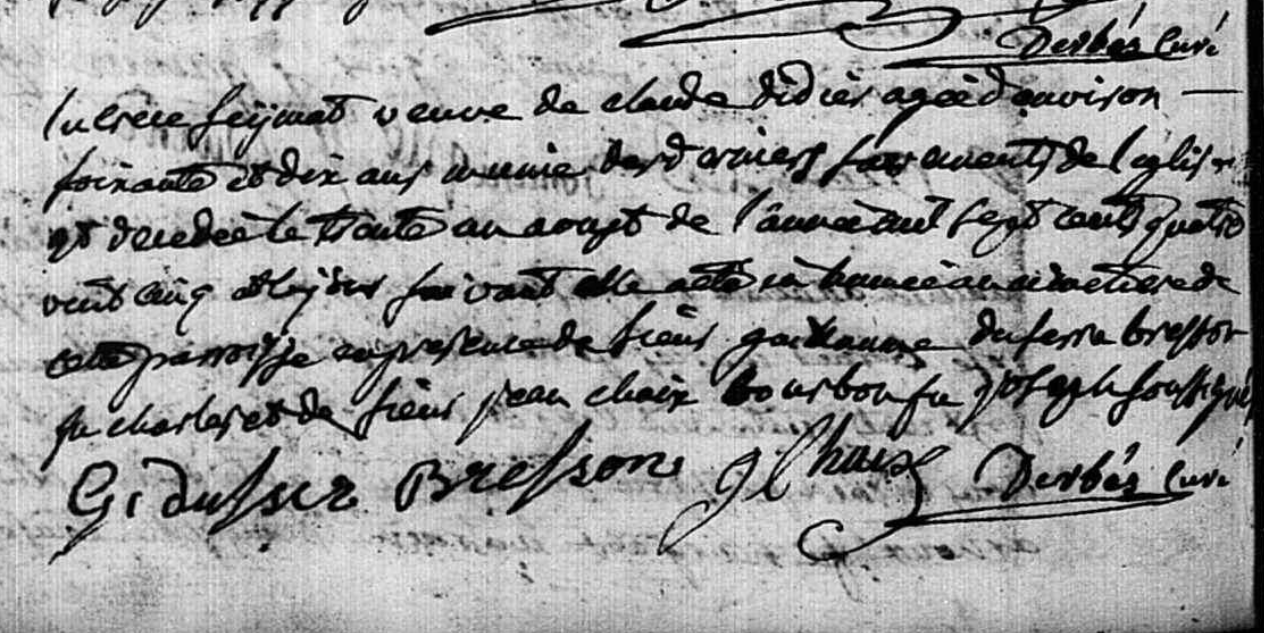 Derbés Curé
lucrece feijmat veuve de claude didier agée d'environ
soixante et dix ans munie des derniers sacrements de l'eglise
est decedée le trente un aoust de l'année mil sept cents quatre
vint cinq et le jour suivant elle a eté inhumée au cimetiere de
cette parroisse en presence de sieur guillaume dusserre bresson
fu charles et de sieur jean chaix bourbon fu joseph soussignés
G. dusser Bresson J Chaix Derbés Curé